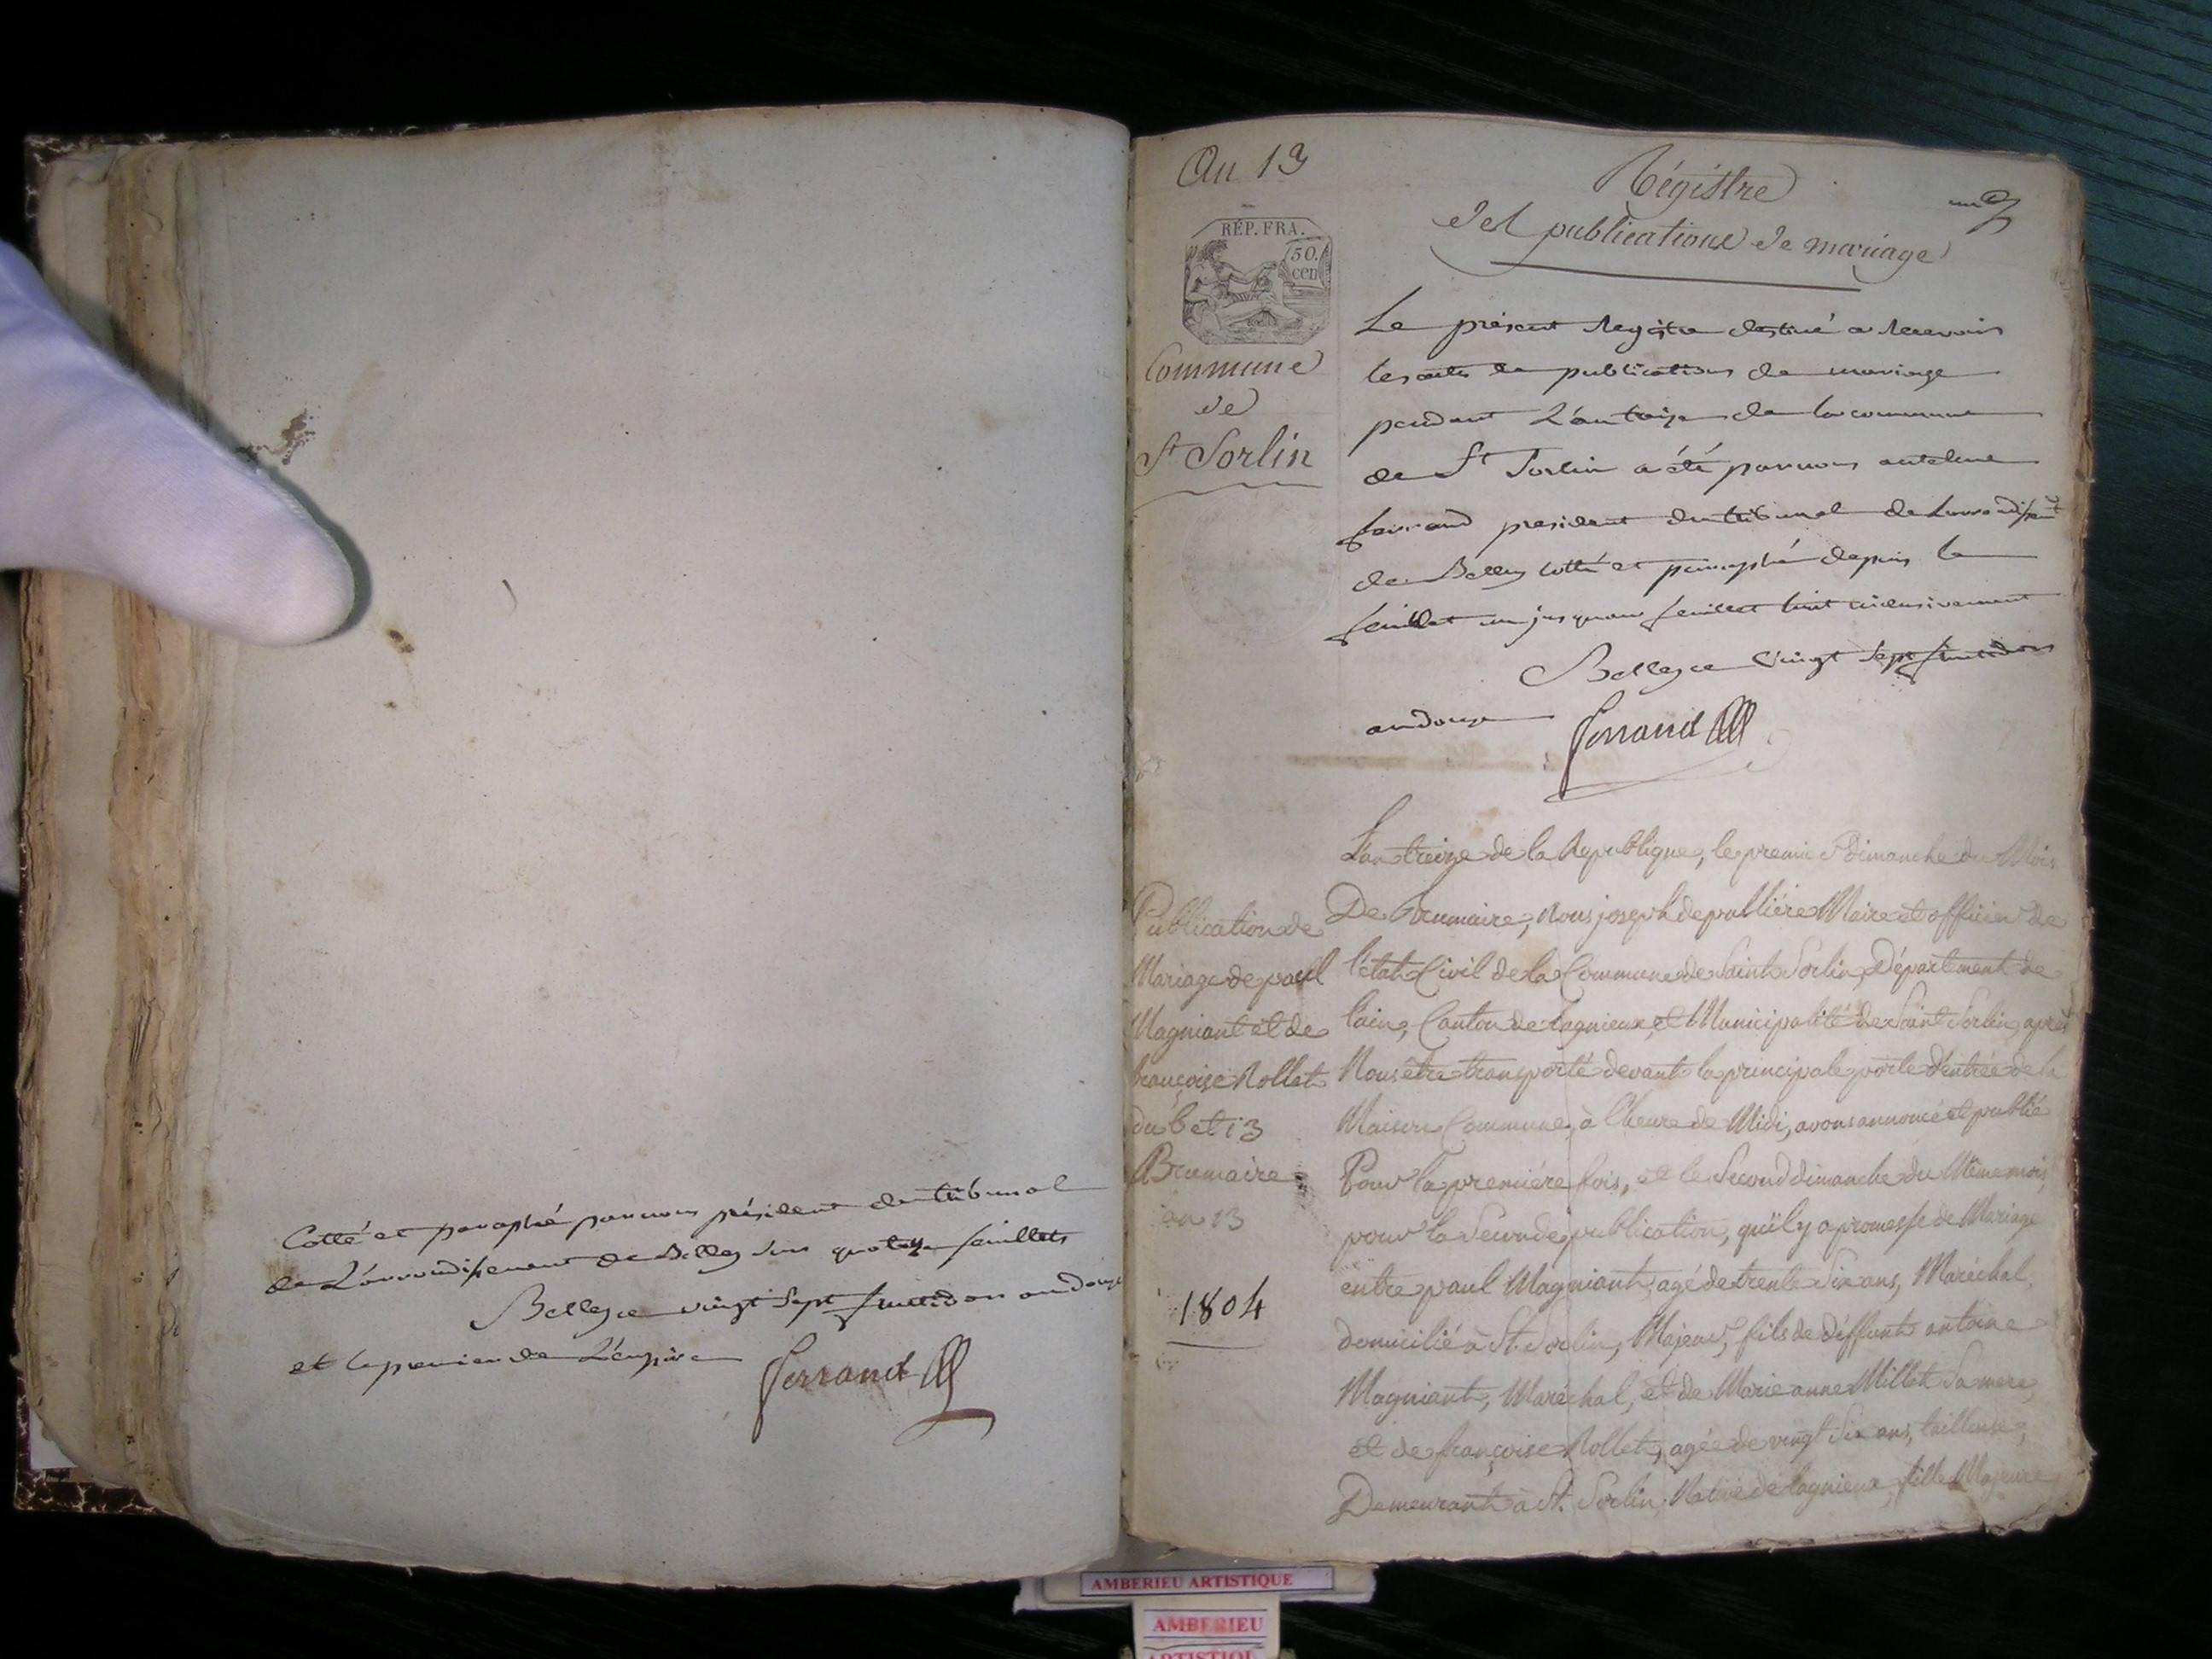 Cotté et paraphé par nous président du tribunal
de L'arrondissement de Belley sur quatorze feuillets
Belley ce vingt sept fructidor an douze
et le premier de L'empire
ferrand
An 13
Régistre
des publications de mariage
un
RÉP. FRA.
50.
cen
Commune
de
St Sorlin
Le présent Registre destiné a recevoir
les actes de publications de mariage
pendant L'an treize de la commune
de St Sorlin a été par nous antelme
ferrand president du tribunal de L'arrondissemt
de Belley cotté et paraphé depuis le
feuillet un jusquau feuillet huit inclusivement
Belley ce vingt sept fructidor
an douze
ferrand
Publication de
Mariage de paul
Magniant et de
françoise Rollet
du 6 et 13
Brumaire
an 13
1804
L'an treize de la Republique, le premier dimanche du Mois
De Brumaire, Nous joseph depulliére Maire et officier de
l'état Civil de la Commune de Saint Sorlin, Département de
l'ain, Canton de Lagnieux, et Municipalité de Saint Sorlin, après
Nous être transporté devant la principale porte d'entrée de la
Maison Commune, à l'heure de Midi, avons annoncé et publié
Pour la premiére fois, et le Second dimanche du Même mois,
pour la Seconde publication, qu'il y a promesse de Mariage
entre paul Magniant, agé de trente Six ans, Maréchal,
domicilié à St. Sorlin, Majeur, fils de déffunt antoine
Magniant, Maréchal, et de Marie anne Millet Sa mere,
et de françoise Rollet, agée de vingt Six ans, tailleuse,
Demeurant à St. Sorlin, Native de Lagnieux, fille Majeure
AMBERIEU ARTISTIQUE
AMBERIEU
ARTISTIQUE